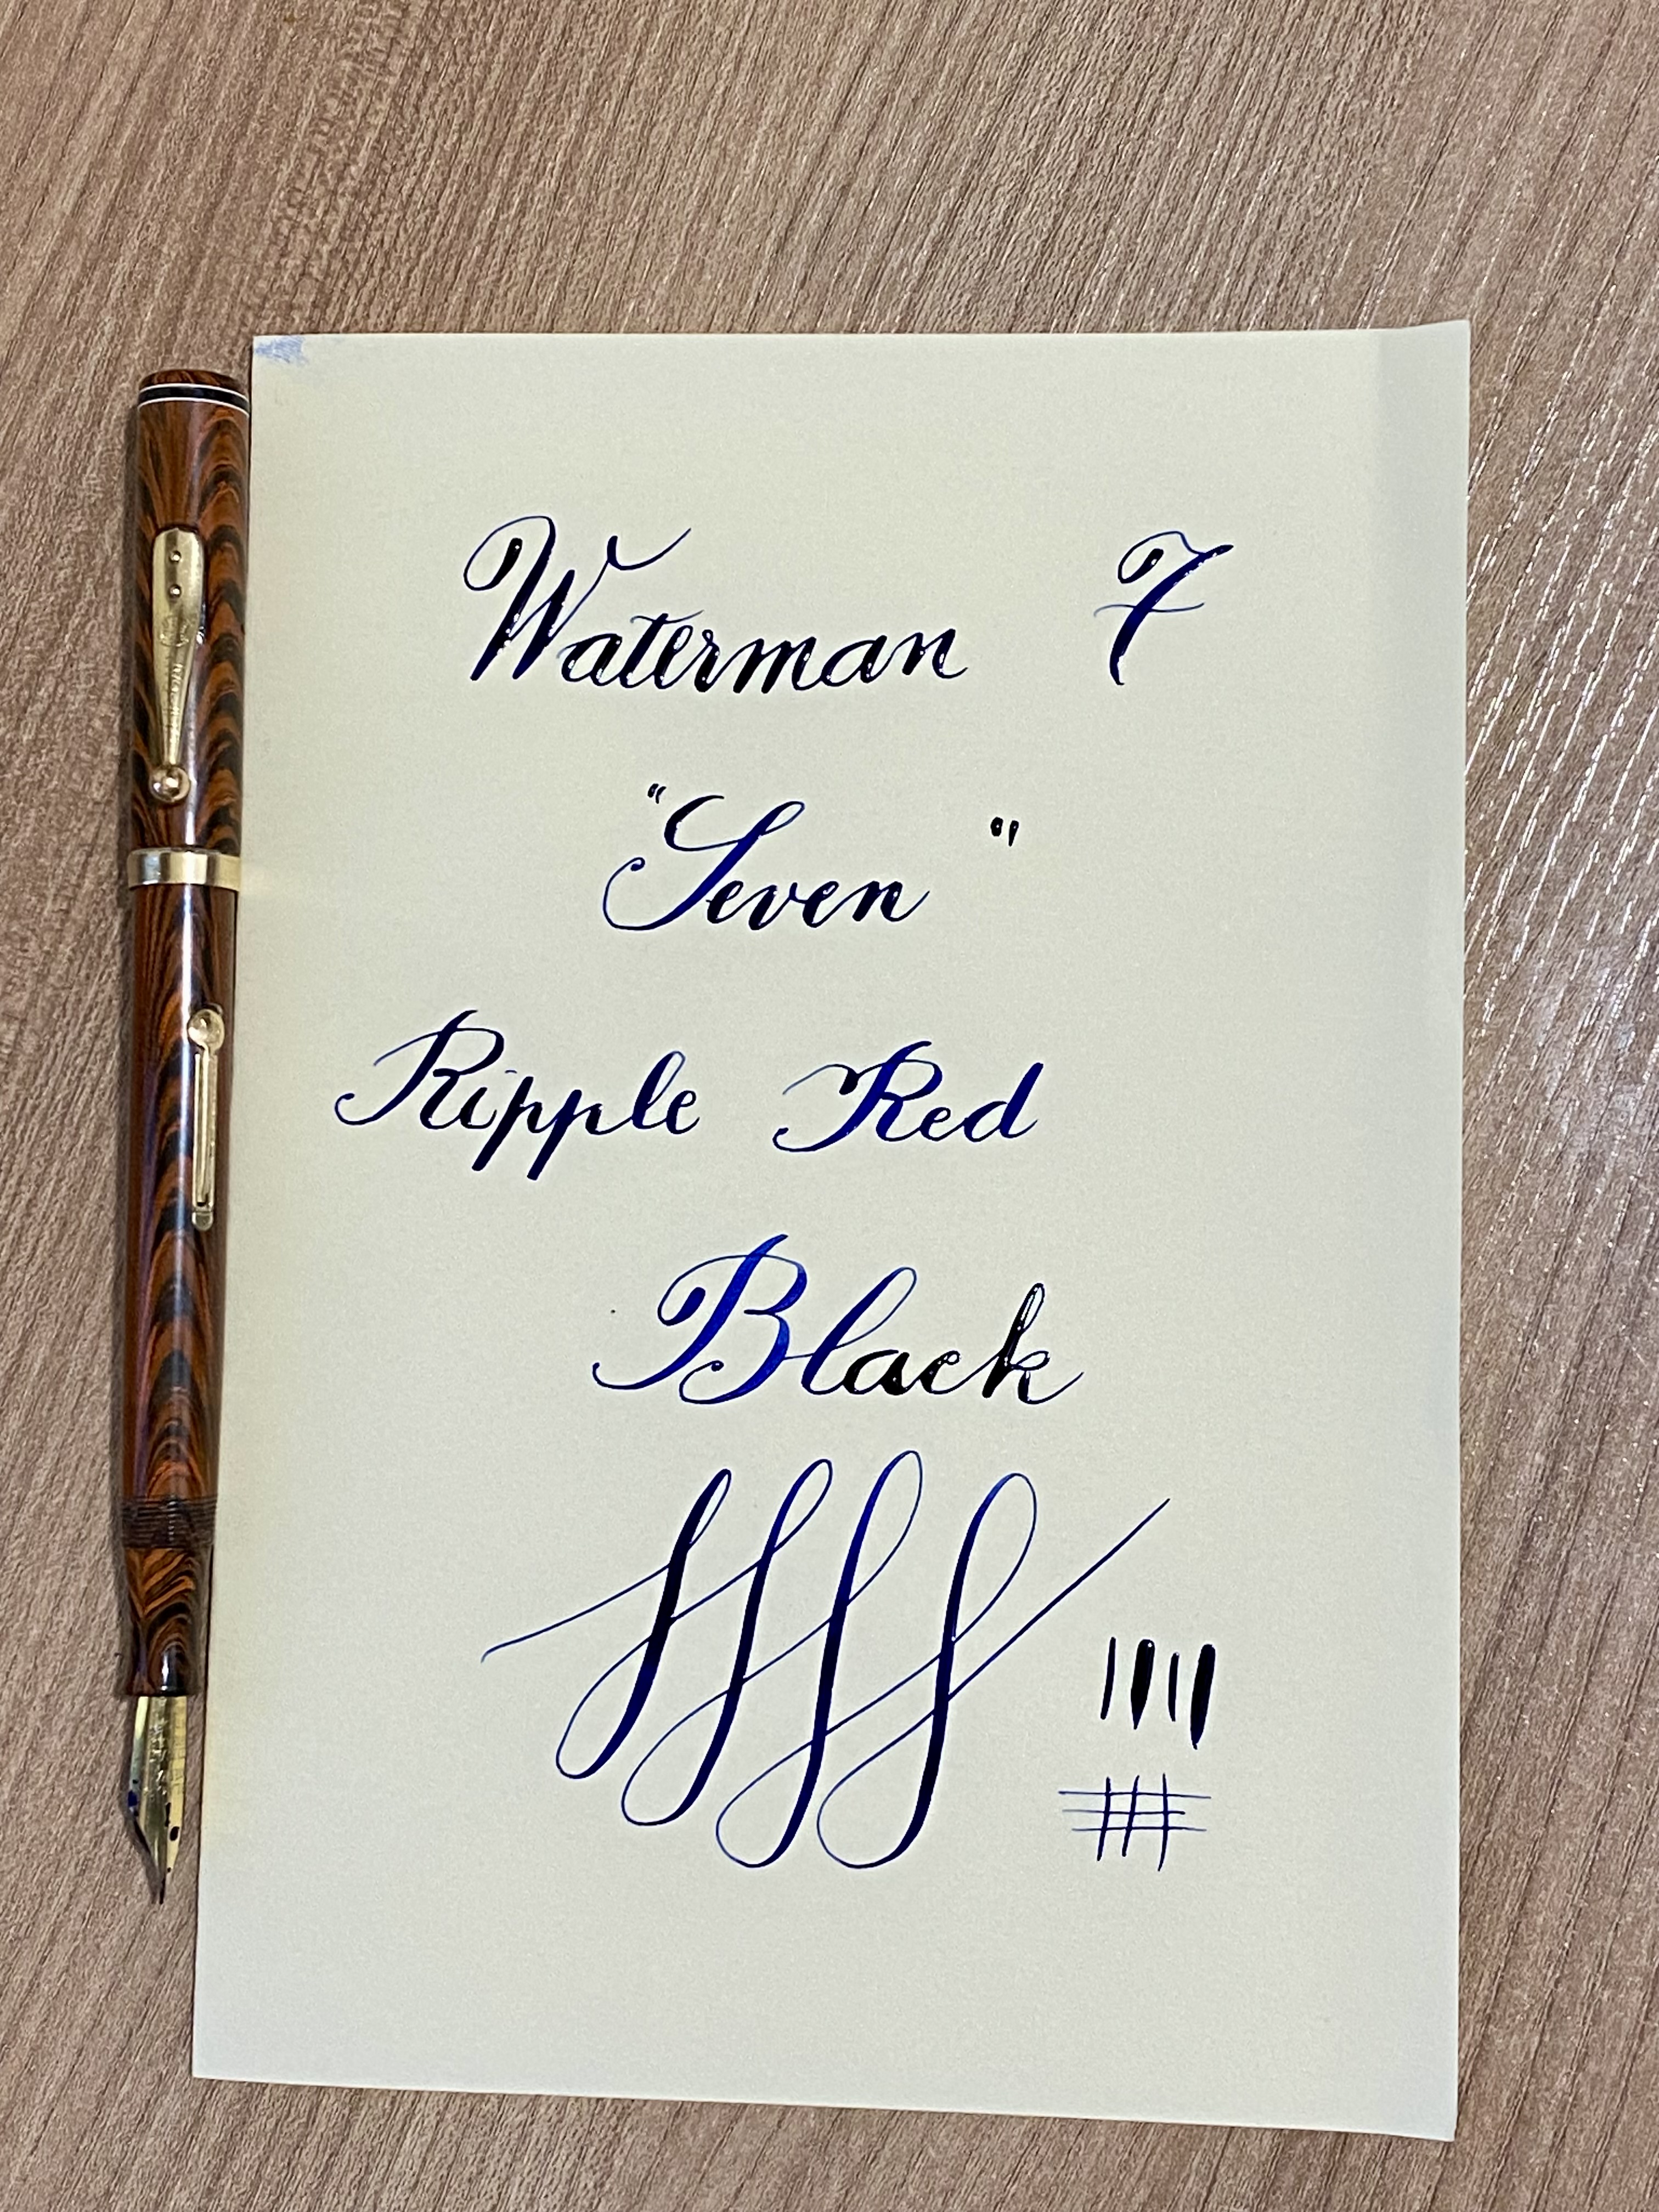 Waterman 7
"Seven"
Ripple Red
Black